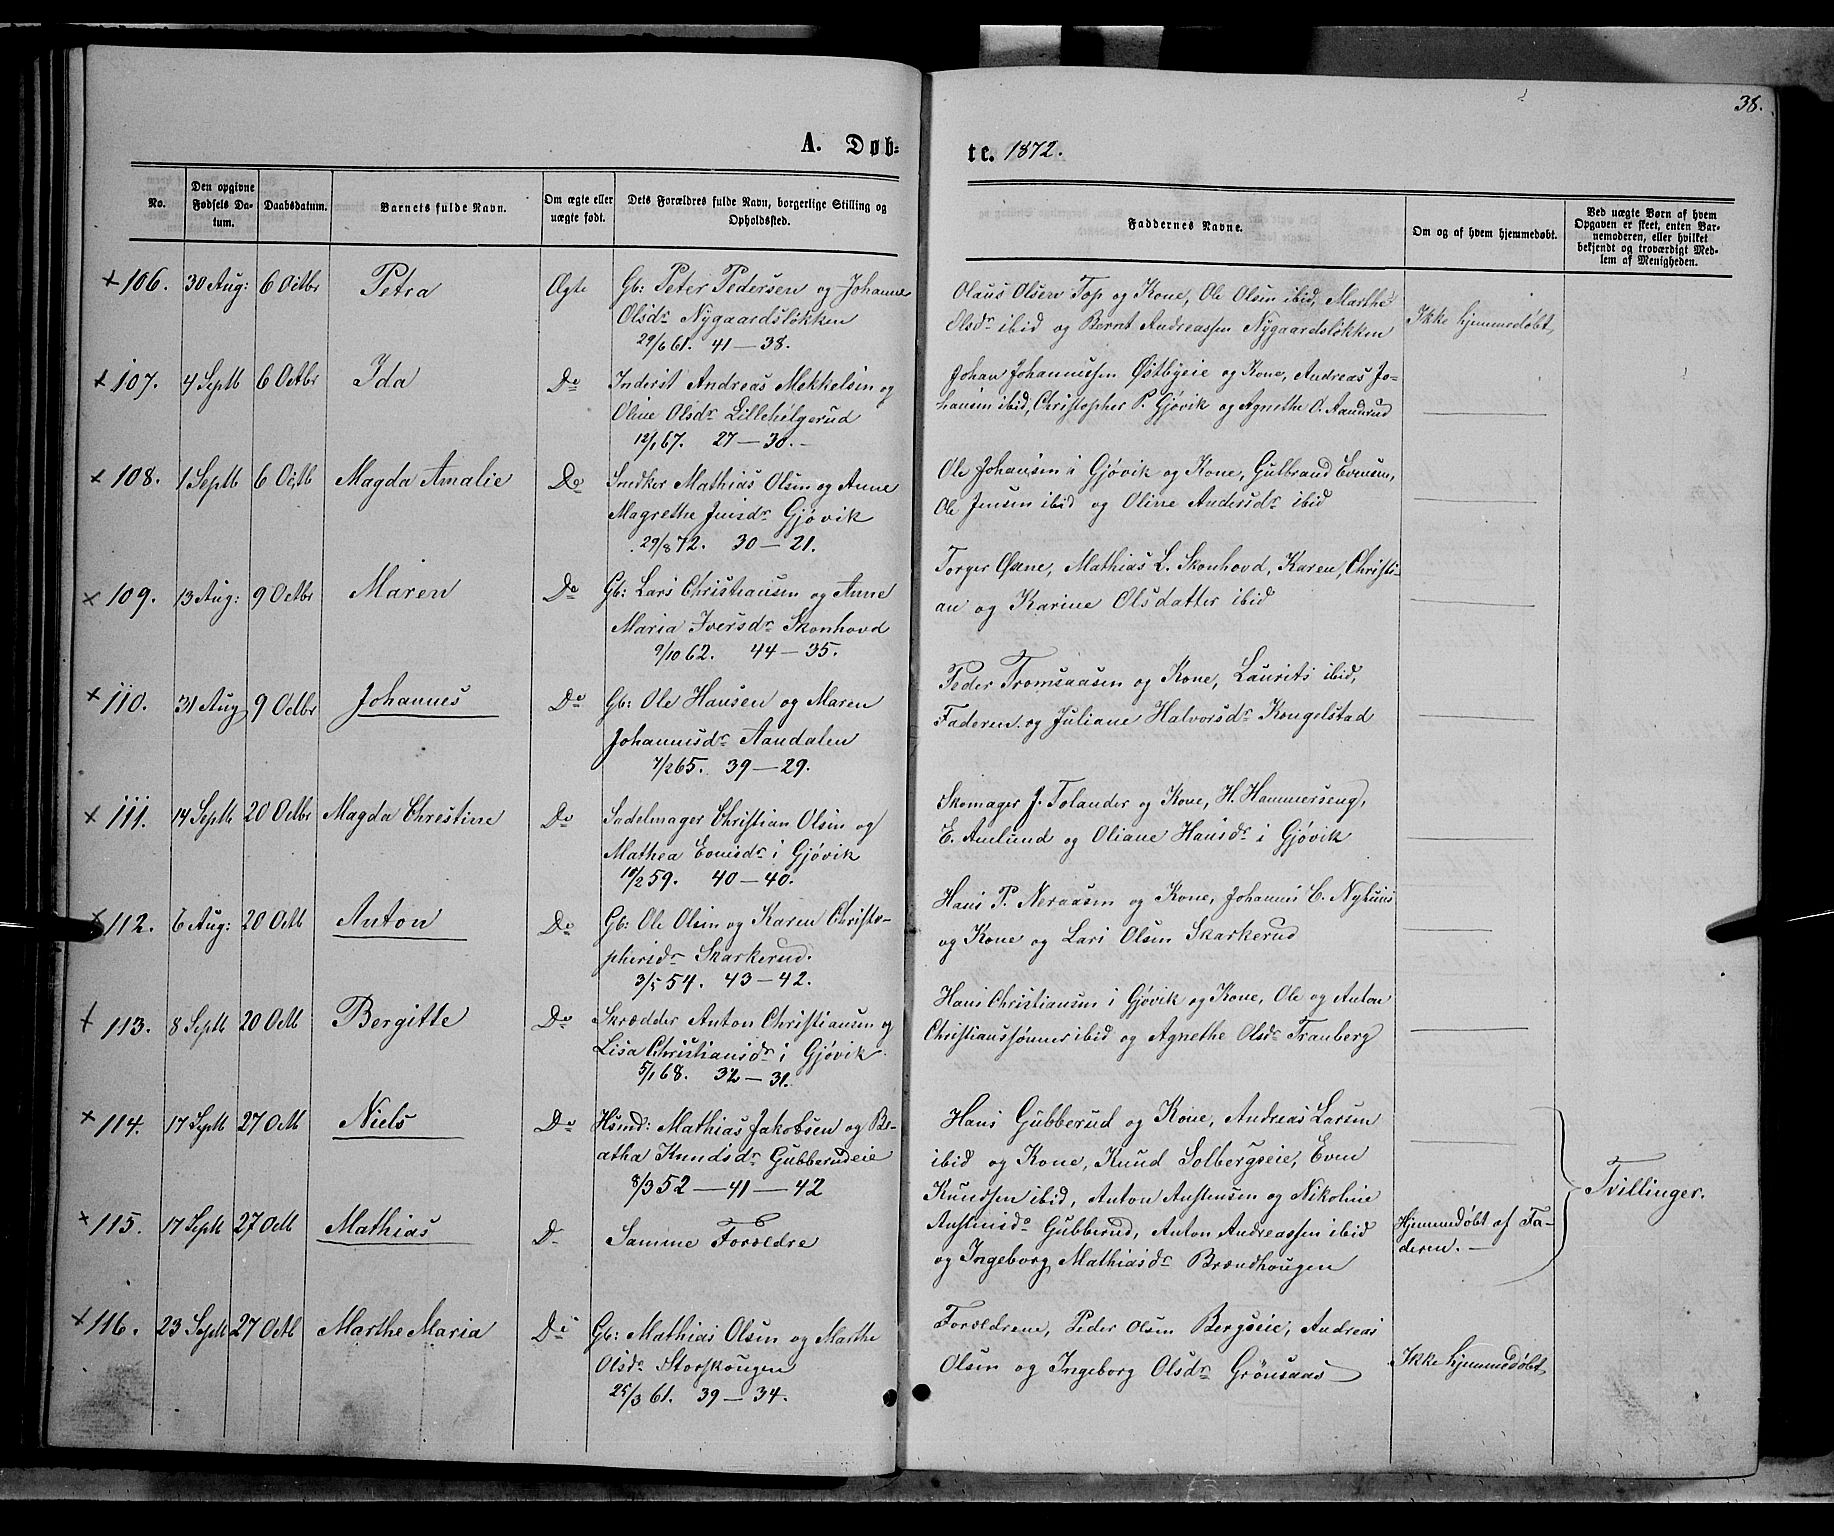 38.
A. Døb-
te. 1872.
No.
Den opgivne Fødsels Datum.
Daabsdatum.
Barnets fulde Navn.
Om ægte eller uægte født.
Dets Forældres fulde Navn, borgerlige Stilling og Opholdssted.
Faddernes Navne.
Om og af hvem hjemmedøbt.
Ved uægte Børn af hvem Opgaven er skeet, enten Barnemoderen, eller hvilket bekjendt og troværdigt Medlem af Menigheden.
106. 30 Aug: 6 Octbr Petra Ægte Gb: Peter Pedersen og Johanne
Olsdr Nygaardsløkken
29/6 61. 41 — 38.
Olaus Olsen Top og Kone, Ole Olsen ibid, Marthe
Olsdr ibid og Bernt Andreassen Nygaardsløkken
Ikke hjemmedøbt
107. 4 Septb 6 Octbr Ida Do Inderst Andreas Mekkelsen og
Oline Olsdr Lillehelgerud
12/1 67. 27 — 30.
Johan Johannessen Østbyeie og Kone, Andreas Jo-
hansen ibid, Christopher P. Gjøvik og Agnethe O. Aandrud
108. 1 Septb 6 Octb Magda Amalie Do Snedker Mathias Olsen og Anne
Magrethe Jensdr Gjøvik
29/8 72. 30 — 21.
Ole Johansen i Gjøvik og Kone, Gulbrand Evensen,
Ole Jensen ibid og Oline Andersdr ibid
109. 13 Aug: 9 Octbr Maren Do Gb: Lars Christiansen og Anne
Maria Iversdr Skonhovd
9/10 62. 44 — 35.
Torger Øane, Mathias L. Skonhovd, Karen, Christi-
an og Karine Olsdatter ibid
110. 31 Aug 9 Octbr Johannes Do Gb: Ole Hansen og Maren
Johannesdr Aandalen
7/2 65. 39 — 29.
Peder Tromsaasen og Kone, Laurits ibid,
Faderen og Juliane Halvorsdr Kongelstad
111. 14 Septb 20 Octbr Magda Christine Do Sadelmager Christian Olsen og
Mathea Evensdr i Gjøvik
10/2 59. 40 — 40.
Skomager J. Tolander og Kone, H. Hammerseng,
E. Amlund og Oliane Hansdr i Gjøvik
112. 6 Aug: 20 Octb Anton Do Gb: Ole Olsen og Karen Christo-
phersdr Skarkerud.
3/5 54. 43 — 42.
Hans P. Neraasen og Kone, Johannes C. Nyhuus
og Kone og Lars Olsen Skarkerud
113. 8 Septb 20 Octb Bergitte Do Skrædder Anton Christiansen og
Lisa Christiansdr i Gjøvik.
5/1 68. 32 — 31.
Hans Christiansen i Gjøvik og Kone, Ole og Anton
Christianssønner ibid og Agnethe Olsdr Tranberg
114. 17 Septb 27 Octb Niels Do Husmd: Mathias Jakobsen og Be-
atha Knudsdr Gubberudeie
8/3 52 — 41 — 42
Hans Gubberud og Kone, Andreas Larsen
ibid og Kone, Knud Solbergseie, Even
Knudsen ibid, Anton Austensen og Nikoline
Tvillinger.
115. 17 Septb 27 Octb Mathias Do Samme Forældre
Austensdr Gubberud, Anton Andreassen ibid
og Ingeborg Mathiasdr Brændhougen
Hjemmedøbt af Fa-
deren. —
116. 23 Septb 27 Octb Marthe Maria Do Gb: Mathias Olsen og Marthe
Olsdr Storskougen
25/3 61. 39 — 34.
Forældrene, Peder Olsen Bergseie, Andreas
Olsen og Ingeborg Olsdr Grønsaas
Ikke hjemmedøbt